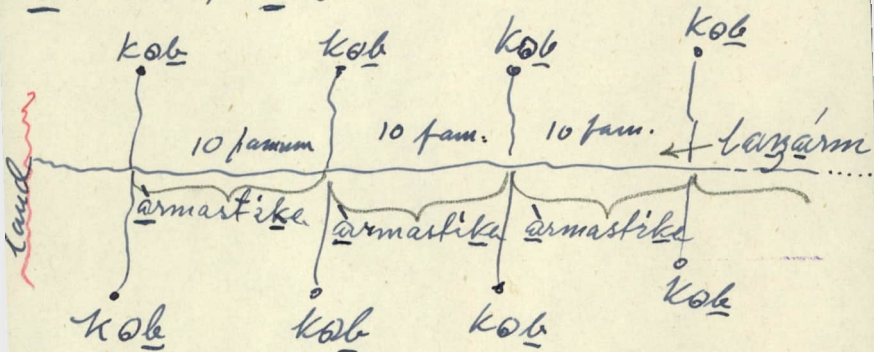 kəb kəb kəb kəb
10 famnm 10 fam. 10 fam. ← laŋarm
land
àrmastike àrmastike àrmastike
kəb kəb kəb kəb